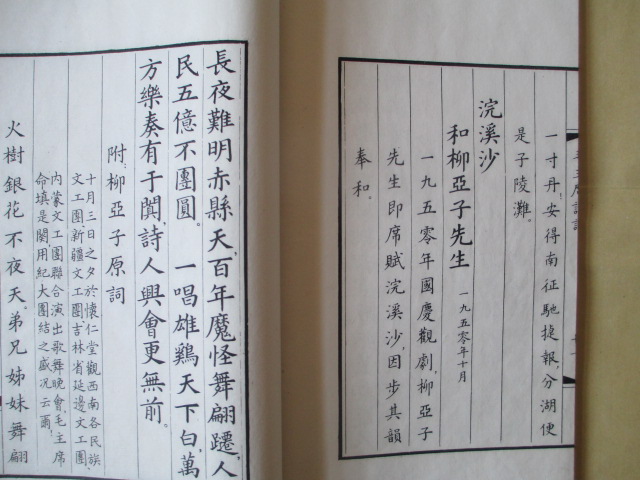 一寸丹，安得南征馳捷報，分湖便
是子陵灘。
浣溪沙
和柳亞子先生 一九五零年十月
一九五零年國慶觀劇，柳亞子
先生即席賦浣溪沙，因步其韻
奉和。
長夜難明赤縣天，百年魔怪舞翩躚，人
民五億不團圓。 一唱雄鷄天下白，萬
方樂奏有于闐，詩人興會更無前。
附：柳亞子原詞
十月三日之夕於懷仁堂觀西南各民族
文工團、新疆文工團、吉林省延邊文工團、
內蒙文工團聯合演出歌舞晚會，毛主席
命填是闋，用紀大團結之盛况云爾！
火樹銀花不夜天，弟兄姊妹舞翩